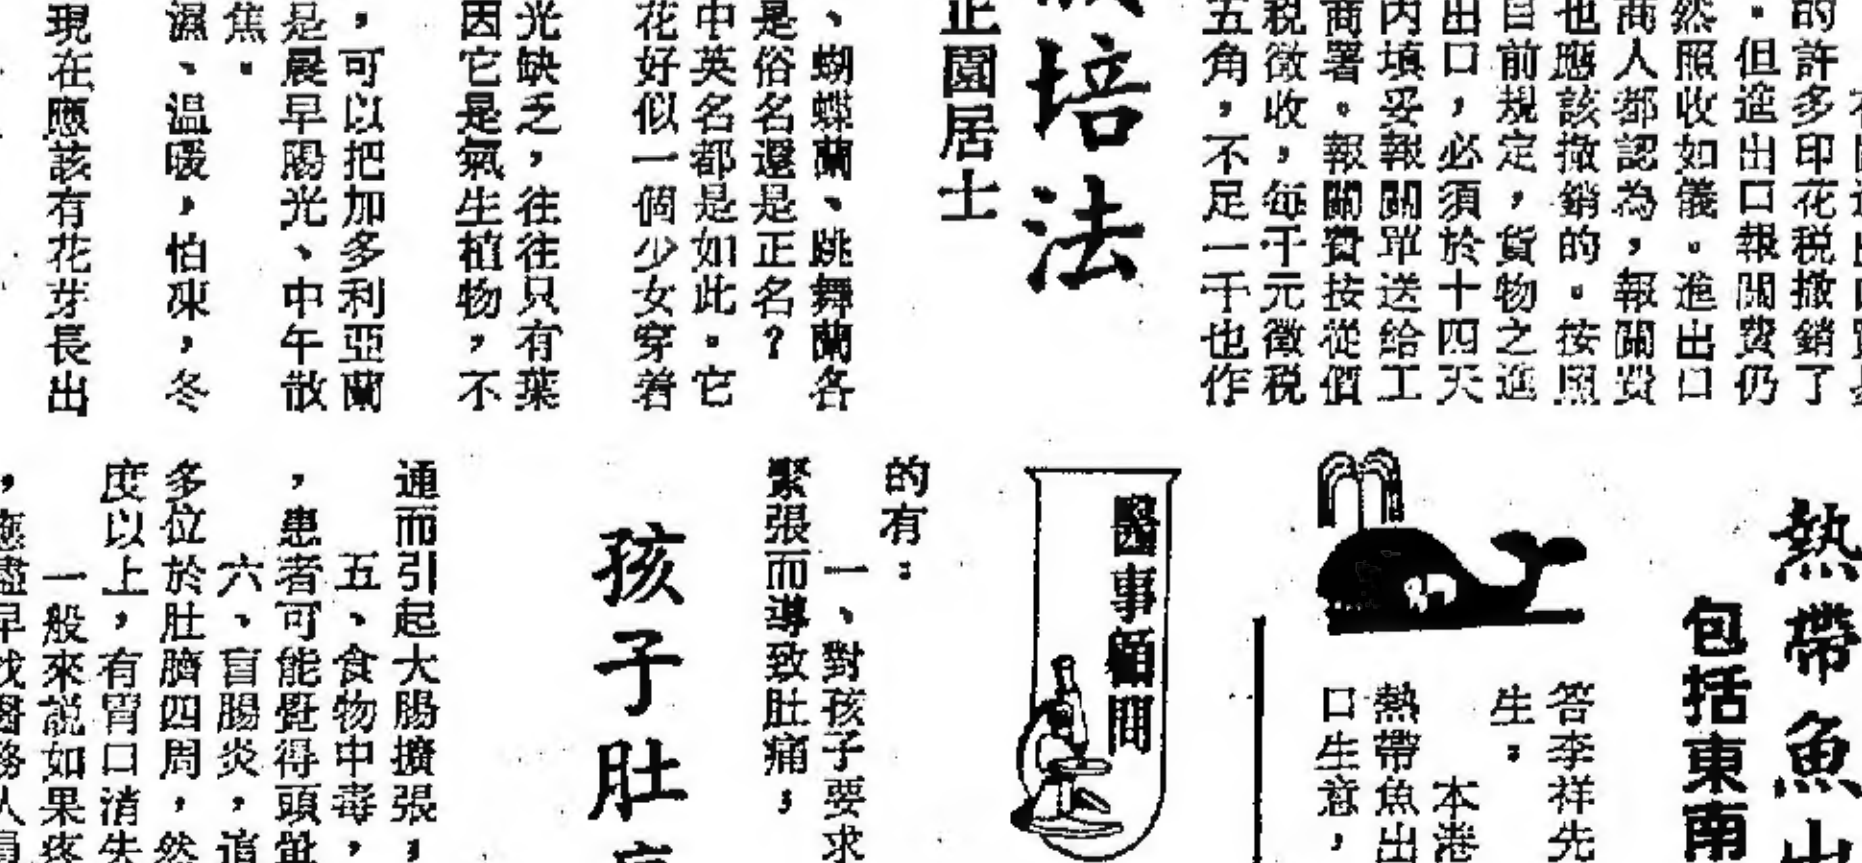 的許多印花税撤銷了
。但進出口報關費仍
然照收如儀。進出口
商人都認為，報關費
也應該撤銷的。按照
目前規定，貨物之進
出口，必須於十四天
內填妥報關單送給工
商署。報關費按從價
税徵收，每千元徵税
五角，不足一千也作
培法
正園居士
、蝴蝶蘭、跳舞蘭各
是俗名還是正名？
中英名都是如此。它
花好似一個少女穿着
光缺乏，往往只有葉
因它是氣生植物，不
，可以把加多利亞蘭
是晨早陽光、中午散
焦。
濕、温暖，怕凍，冬
現在應該有花芽長出
熱帶魚出
包括東南
答李祥先
生：
本港
熱帶魚出
口生意，
醫事顧問
的有：
一、對孩子要求
緊張而導致肚痛；
孩子肚
通而引起大腸擴張；
五、食物中毒，
，患者可能覺得頭
六、盲腸炎，這
多位於肚臍四周，然
度以上，有胃口消失
一般來説如果疼
，應盡早找醫務人員